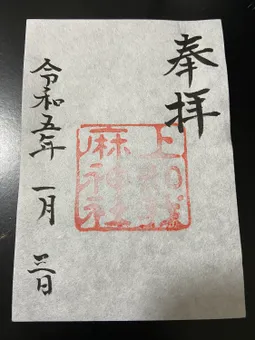 奉拝
上知我
麻神社
令和五年 一月 三日